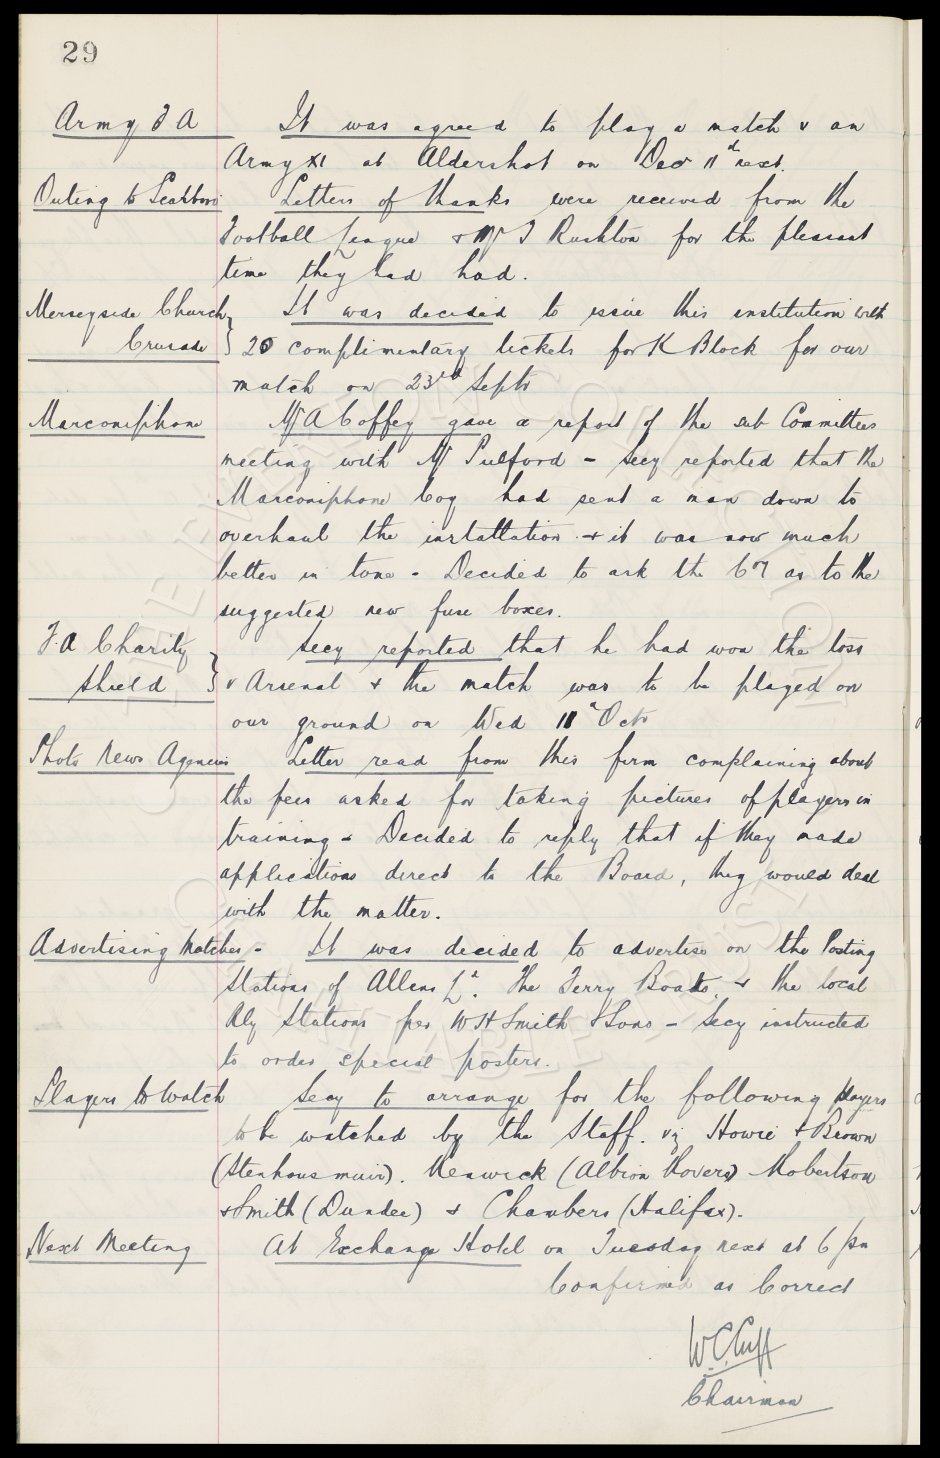 29
Army F A It was agreed to play a match v an
Army XI at Aldershot on Dec 11th next.
Outing to Letters of thanks were received from the
Football League & Mr J Rushton for the pleasant
time they had had.
Merseyside Church It was decided to issue this institution with
Crusade } 20 complimentary tickets for K Block for our
match on 23rd Septr
Marconiphone Mr A Coffey gave a report of the sub Committees
meeting with Mr Pulford - Secy reported that the
Marconiphone Coy had sent a man down to
overhaul the installation & it was now much
better in tone - Decided to ask the Coy as to the
suggested new fuse boxes.
F.A Charity Secy reported that he had won the toss
Shield } v Arsenal & the match was to be played on
our ground on Wed Octr
Photo News Agencies Letter read from this firm complaining about
the fees asked for taking pictures of players in
training - Decided to reply that if they made
applications direct to the Board, they would deal
with the matter.
Advertising Matches - It was decided to advertise on the Posting
Stations of Allens Ld. The Ferry Boats, & the local
Rly Stations per W H Smith & Sons - Secy instructed
to order special posters.
Players to Watch Secy to arrange for the following players
to be watched by the Staff. viz Howie & Brown
(Stenhousmuir). Renwick (Albion Rovers) Robertson
& Smith (Dundee) & Chambers (Halifax).
Next Meeting At Exchange Hotel on Tuesday next at 6 pm
Confirmed as Correct
W.C. Cuff
Chairman